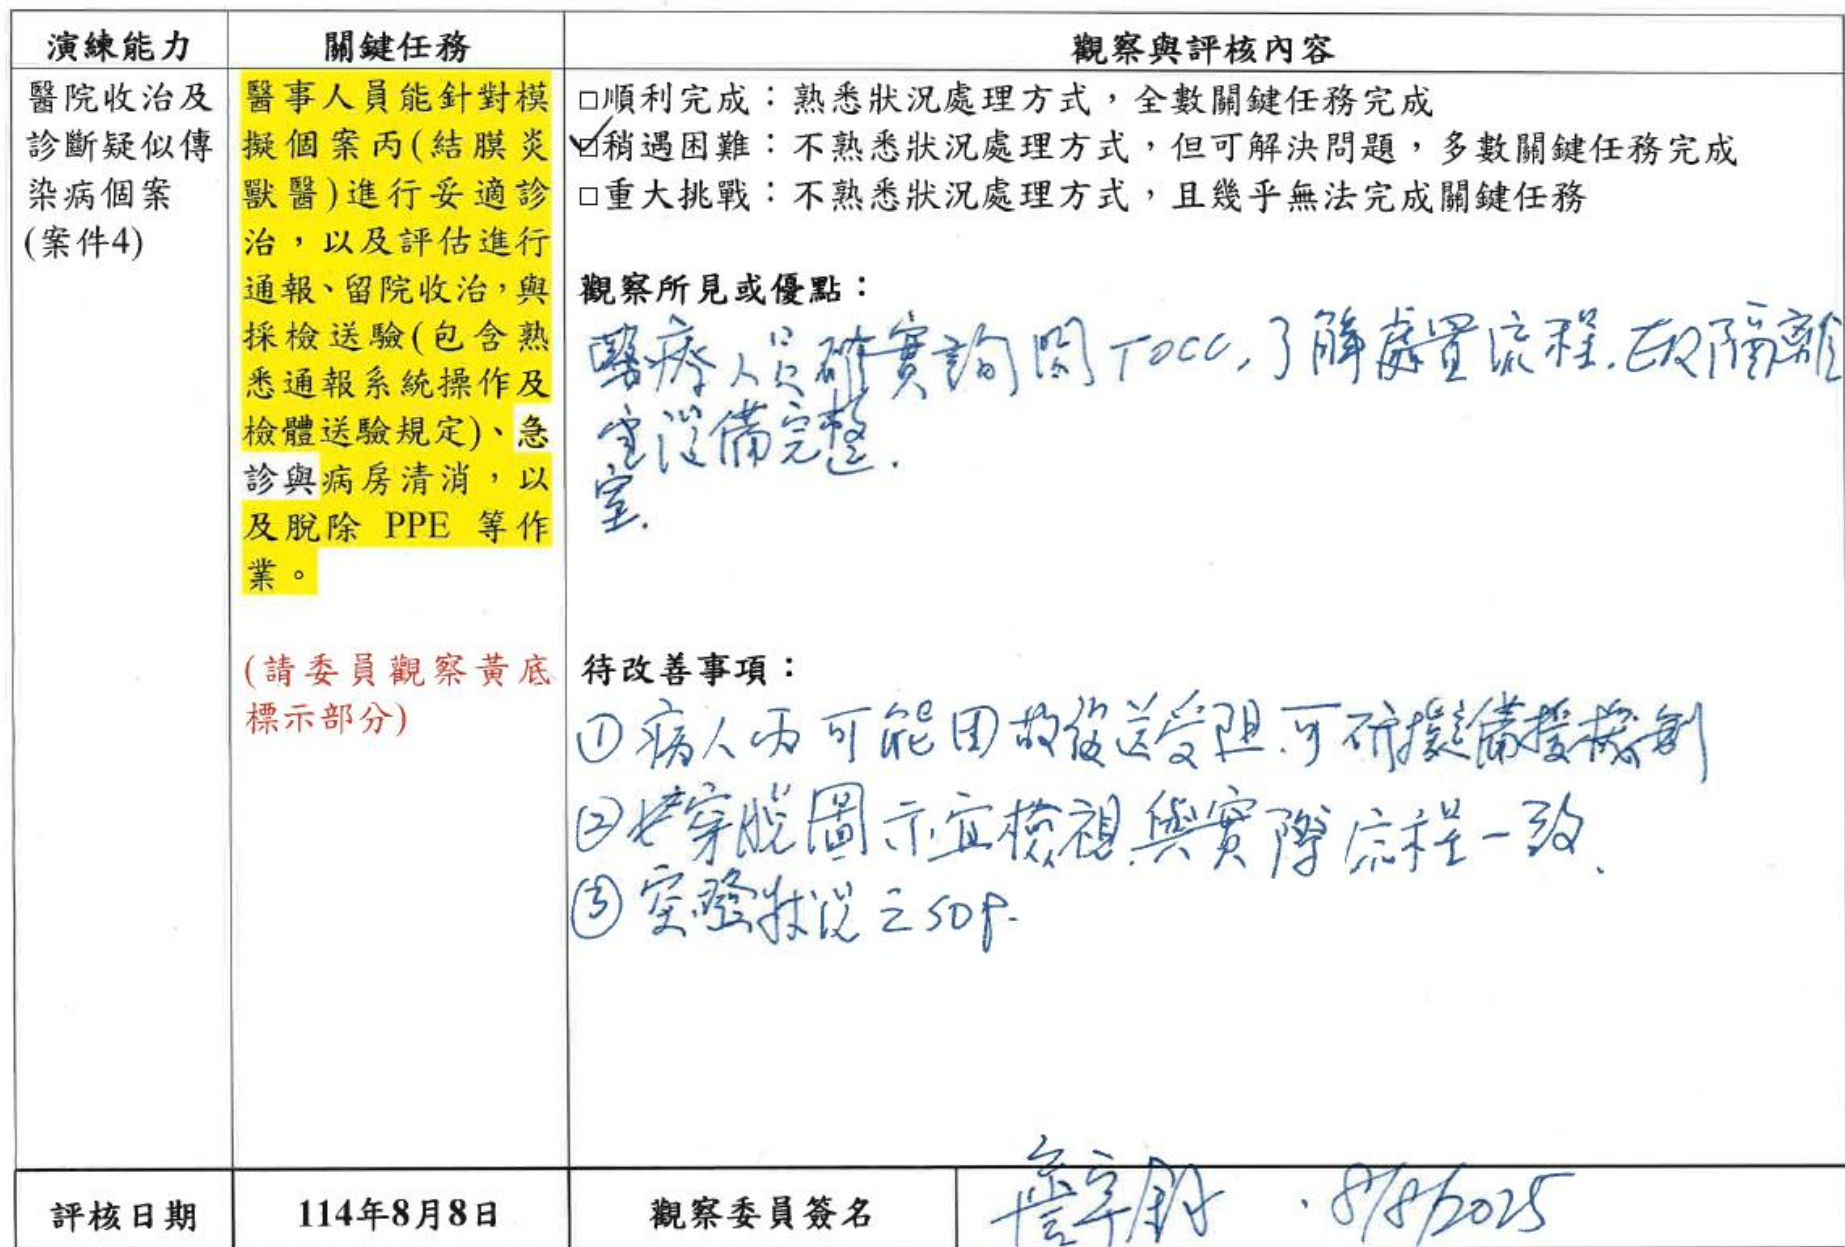 演練能力
關鍵任務
觀察與評核內容
醫院收治及
診斷疑似傳
染病個案
(案件4)
醫事人員能針對模
擬個案丙(結膜炎
獸醫)進行妥適診
治，以及評估進行
通報、留院收治，與
採檢送驗(包含熟
悉通報系統操作及
檢體送驗規定)、急
診與病房清消，以
及脫除 PPE 等作
業。
(請委員觀察黃底
標示部分)
□順利完成：熟悉狀況處理方式，全數關鍵任務完成
☑稍遇困難：不熟悉狀況處理方式，但可解決問題，多數關鍵任務完成
□重大挑戰：不熟悉狀況處理方式，且幾乎無法完成關鍵任務
觀察所見或優點：
醫療人員確實詢問TOCC,了解處置流程.且隔離
室設備完整.
室.
待改善事項：
①病人丙可能因故後送受阻.可研擬備援機制
②穿脫圖示宜檢視與實際流程一致.
③突發狀況之SOP.
評核日期
114年8月8日
觀察委員簽名
8/8/2025